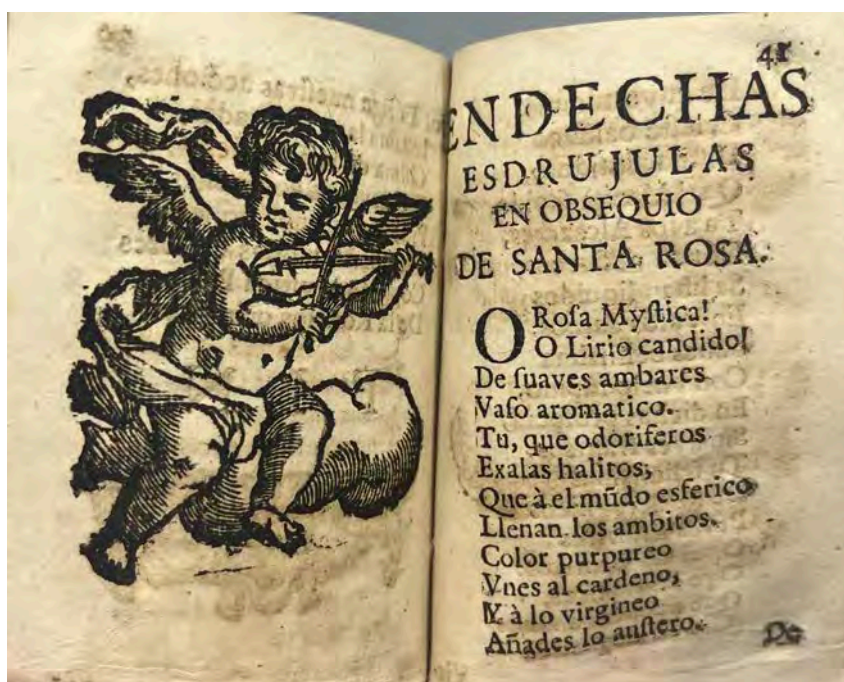 41
ENDECHAS
ESDRUJULAS
EN OBSEQUIO
DE SANTA ROSA.
O Roſa Myſtica!
O Lirio candido!
De ſuaves ambares
Vaſo aromatico.
Tu, que odoriferos
Exalas halitos,
Que à el mũdo esferico
Llenan los ambitos.
Color purpureo
Vnes al cardeno,
Y à lo virgineo
Añades lo auſtero.
De